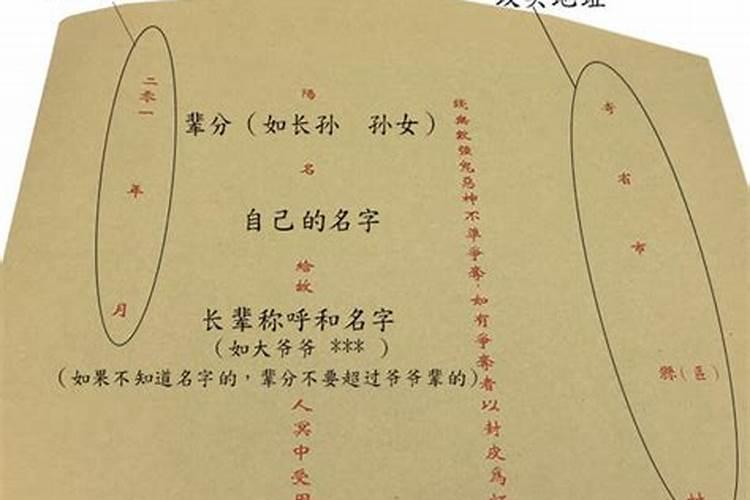 省市縣(區)
錢無数強鬼惡神不準爭奪,如有爭奪者以封皮爲
陽
辈分(如长孙 孙女)
名
自己的名字
給故
长辈称呼和名字
(如大爷爷 *** )
(如果不知道名字的,辈分不要超过爷爷辈的)
人冥中受用
二零一年月